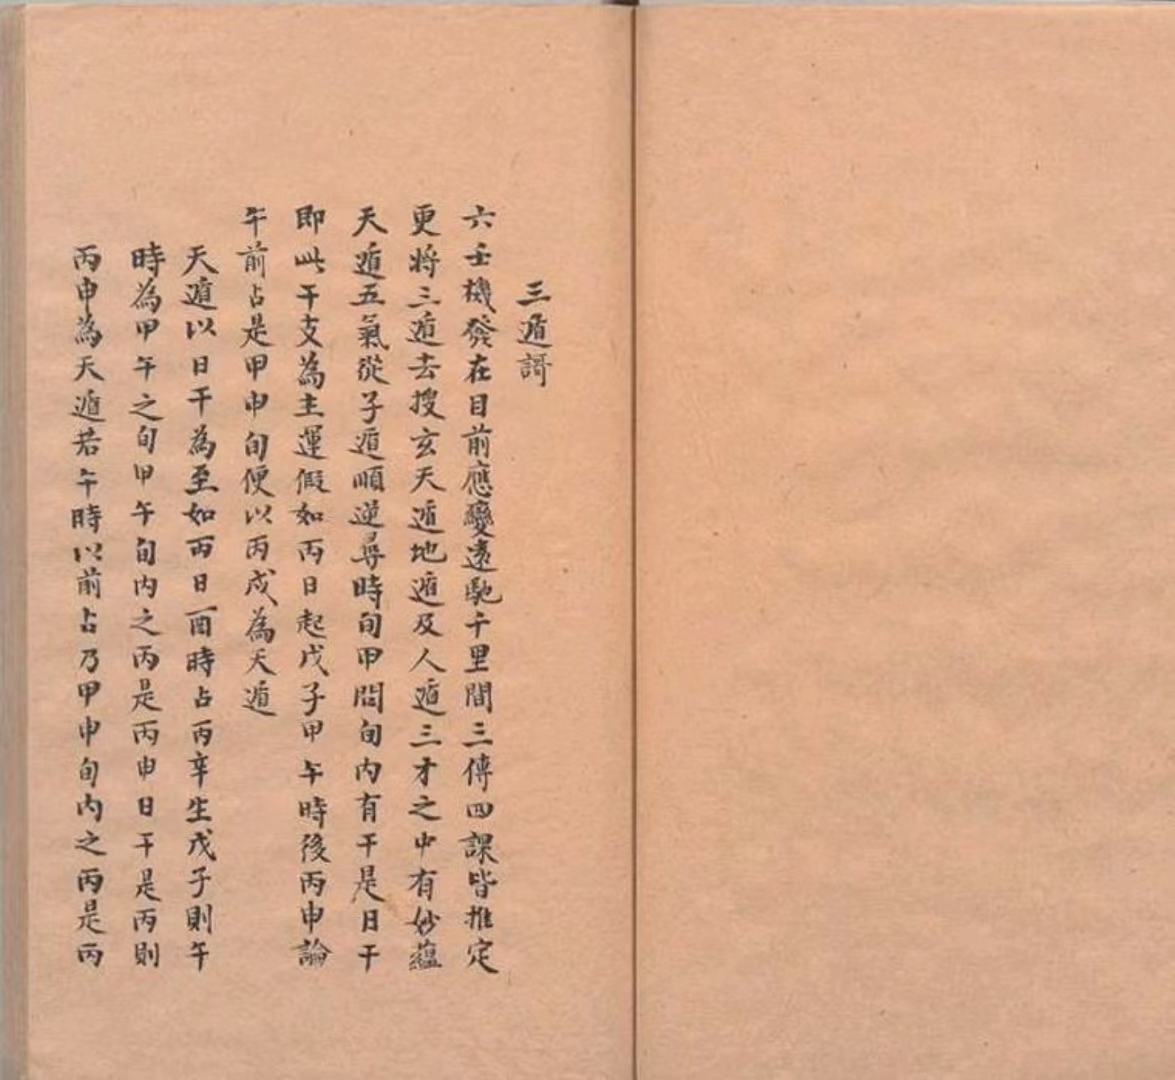 三遁謌
六壬機發在目前應變遠馳千里間三傳四課皆推定
更將三遁去搜玄天遁地遁及人遁三才之中有妙蘊
天遁五氣從子遁順逆尋時旬甲問旬内有干是日干
即此干支為主運假如丙日起戊子甲午時後丙申論
午前占是甲申旬便以丙戌為天遁
天遁以日干為至如丙日酉時占丙辛生戊子則午
時為甲午之旬甲午旬内之丙是丙申日干是丙則
丙申為天遁若午時以前占乃甲申旬内之丙是丙